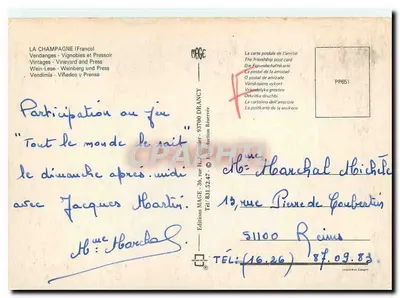 LA CHAMPAGNE (France)
Vendanges - Vignobles et Pressoir
Vintages - Vineyard and Press
Wein-Lese - Weinberg und Press
Vendimia - Viñedos y Prensa
MAGE
La carte postale de l'amitié
The friendship post card
Die Freundschaftskarte
La postal de la amistad
O postal de amizade
Vriendschapskaart
La cartolina dell'amicizia
PP651
Participation au jeu
"Tout le monde le sait"
le dimanche après-midi
avec Jacques Martin.
Mme Marchal
Edition MAGE - 93700 DRANCY
Tél: 831.52.47
CPARTPHIL
Mme Marchal Michèle
19, rue Pierre de Coubertin
51100 Reims
TÉL: (16.26) 87.09.83